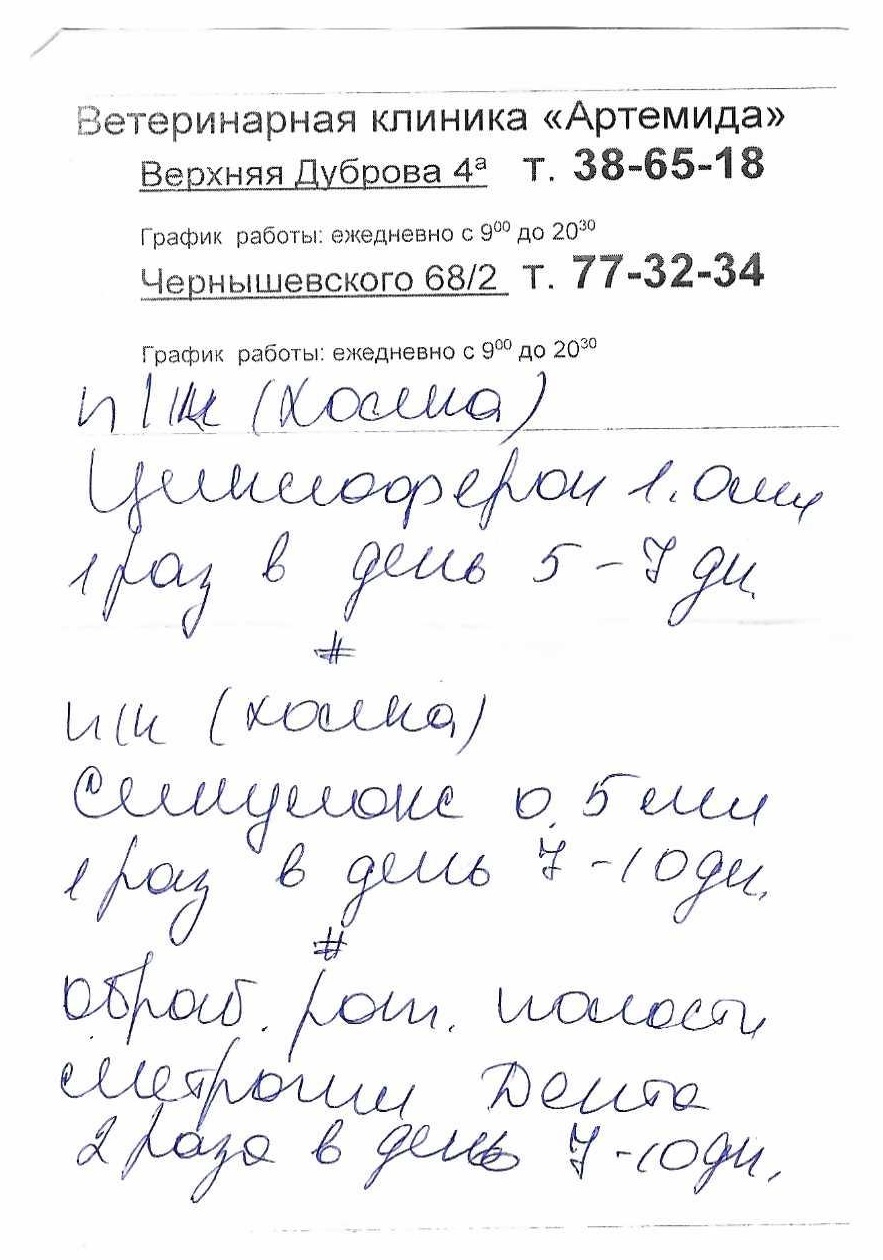 Ветеринарная клиника «Артемида»
Верхняя Дуброва 4а т. 38-65-18
График работы: ежедневно с 9⁰⁰ до 20³⁰
Чернышевского 68/2 т. 77-32-34
График работы: ежедневно с 9⁰⁰ до 20³⁰
п/к (холка)
Циклоферон 1.0мл
1 раз в день 5-7 дн.
#
п/к (холка)
0.5 мл
1 раз в день 7-10дн.
#
Обраб. рот. полости
Метрогил Дента
2 раза в день 7-10дн.